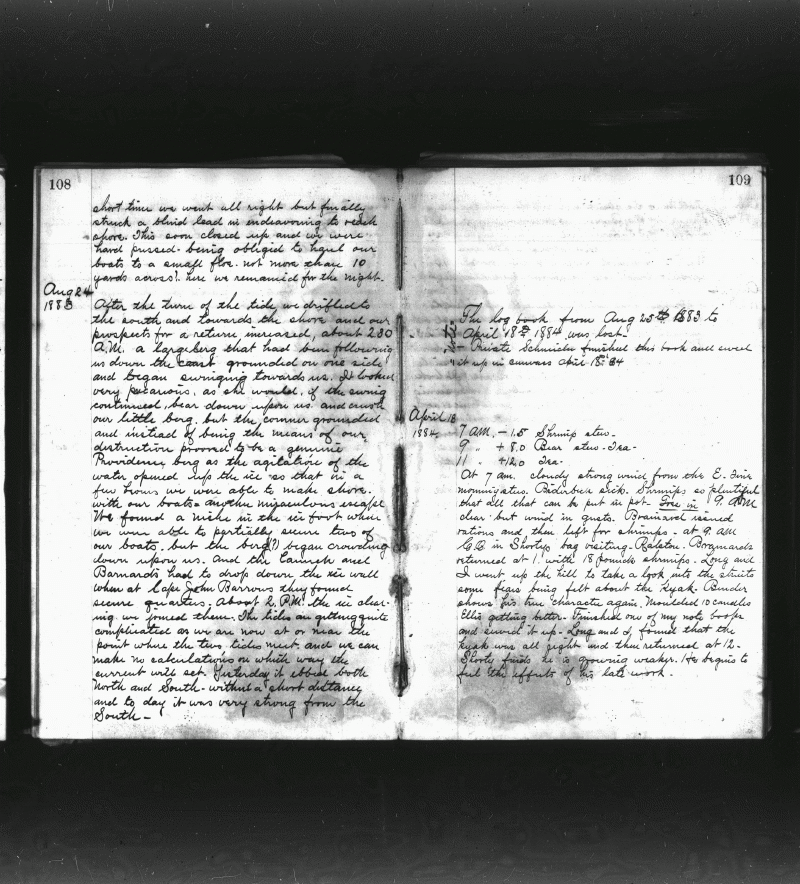 108
short time we went all right but finally
struck a blind lead in endeavouring to reach
shore. This soon closed up and we were
hard pressed being obliged to haul our
boats to a small floe. not more than 10
yards across!. here we remained for the night.
Aug 24
1883
After the turn of the tide we drifted to
the south and towards the shore and our
prospects for a return increased, about 2 30
A.M. a large berg that had been following
us down the coast grounded on one side
and began swinging towards us. It looked
very precarious, as she would, if the swing
continued, bear down upon us and crush
our little berg, but the corner grounded
and instead of being the means of our
destruction prooved to be a genuine
Providence berg as the agitation of the
water opened up the ice so that in a
few hours we were able to make shore.
with our boats another miraculous escape
We found a niche in the ice foot where
we were able to partially secure two of
our boats. but the berg(?) began crowding
down upon us. And the Launch and
Barnards had to drop down the ice wall
when at Cape John Barrows they found
secure quarters. About 2. P.M. the ice clear-
ing we joined them. The tides are getting quite
complicated as we are now at or near the
point where the two tides meet and we can
make no calculations on which way the
current will set. Yesterday it ebbed both
North and South. without a short distance
and to day it was very strong from the
South -
109
The log book from Aug 25th 1883 to
April 18th 1884 was lost.
Private Schneider finished this book and sewed
it up in canvas April 18th 84
April 18
1884
7 A.M. - 1.5 Shrimp stew -
9 " + 8.0 Bear stew - Tea -
11 " +12.0 Tea.
At 7 am. cloudy strong wind from the E. Fair
morning stew. Biederbick sick. Shrimps so plentiful
that all that can be put in pot. in 9. A.M
clear but wind in gusts. Brainard issued
rations and then left for shrimps. at 9. AM
in Shortys bag visiting Ralston. Brainards
returned at 1. with 18 pounds shrimps. Long and
I went up the hill to take a look into the straits
some fears being felt about the Kyak. Bender
shows his true character again. Moulded 10 candles
Ellis getting better. Finished one of my note books
and sewed it up. Long and I found that the
Kyak was all right and then returned at 12.
Shorty finds he is growing weaker. He begins to
feel the effects of his late work.